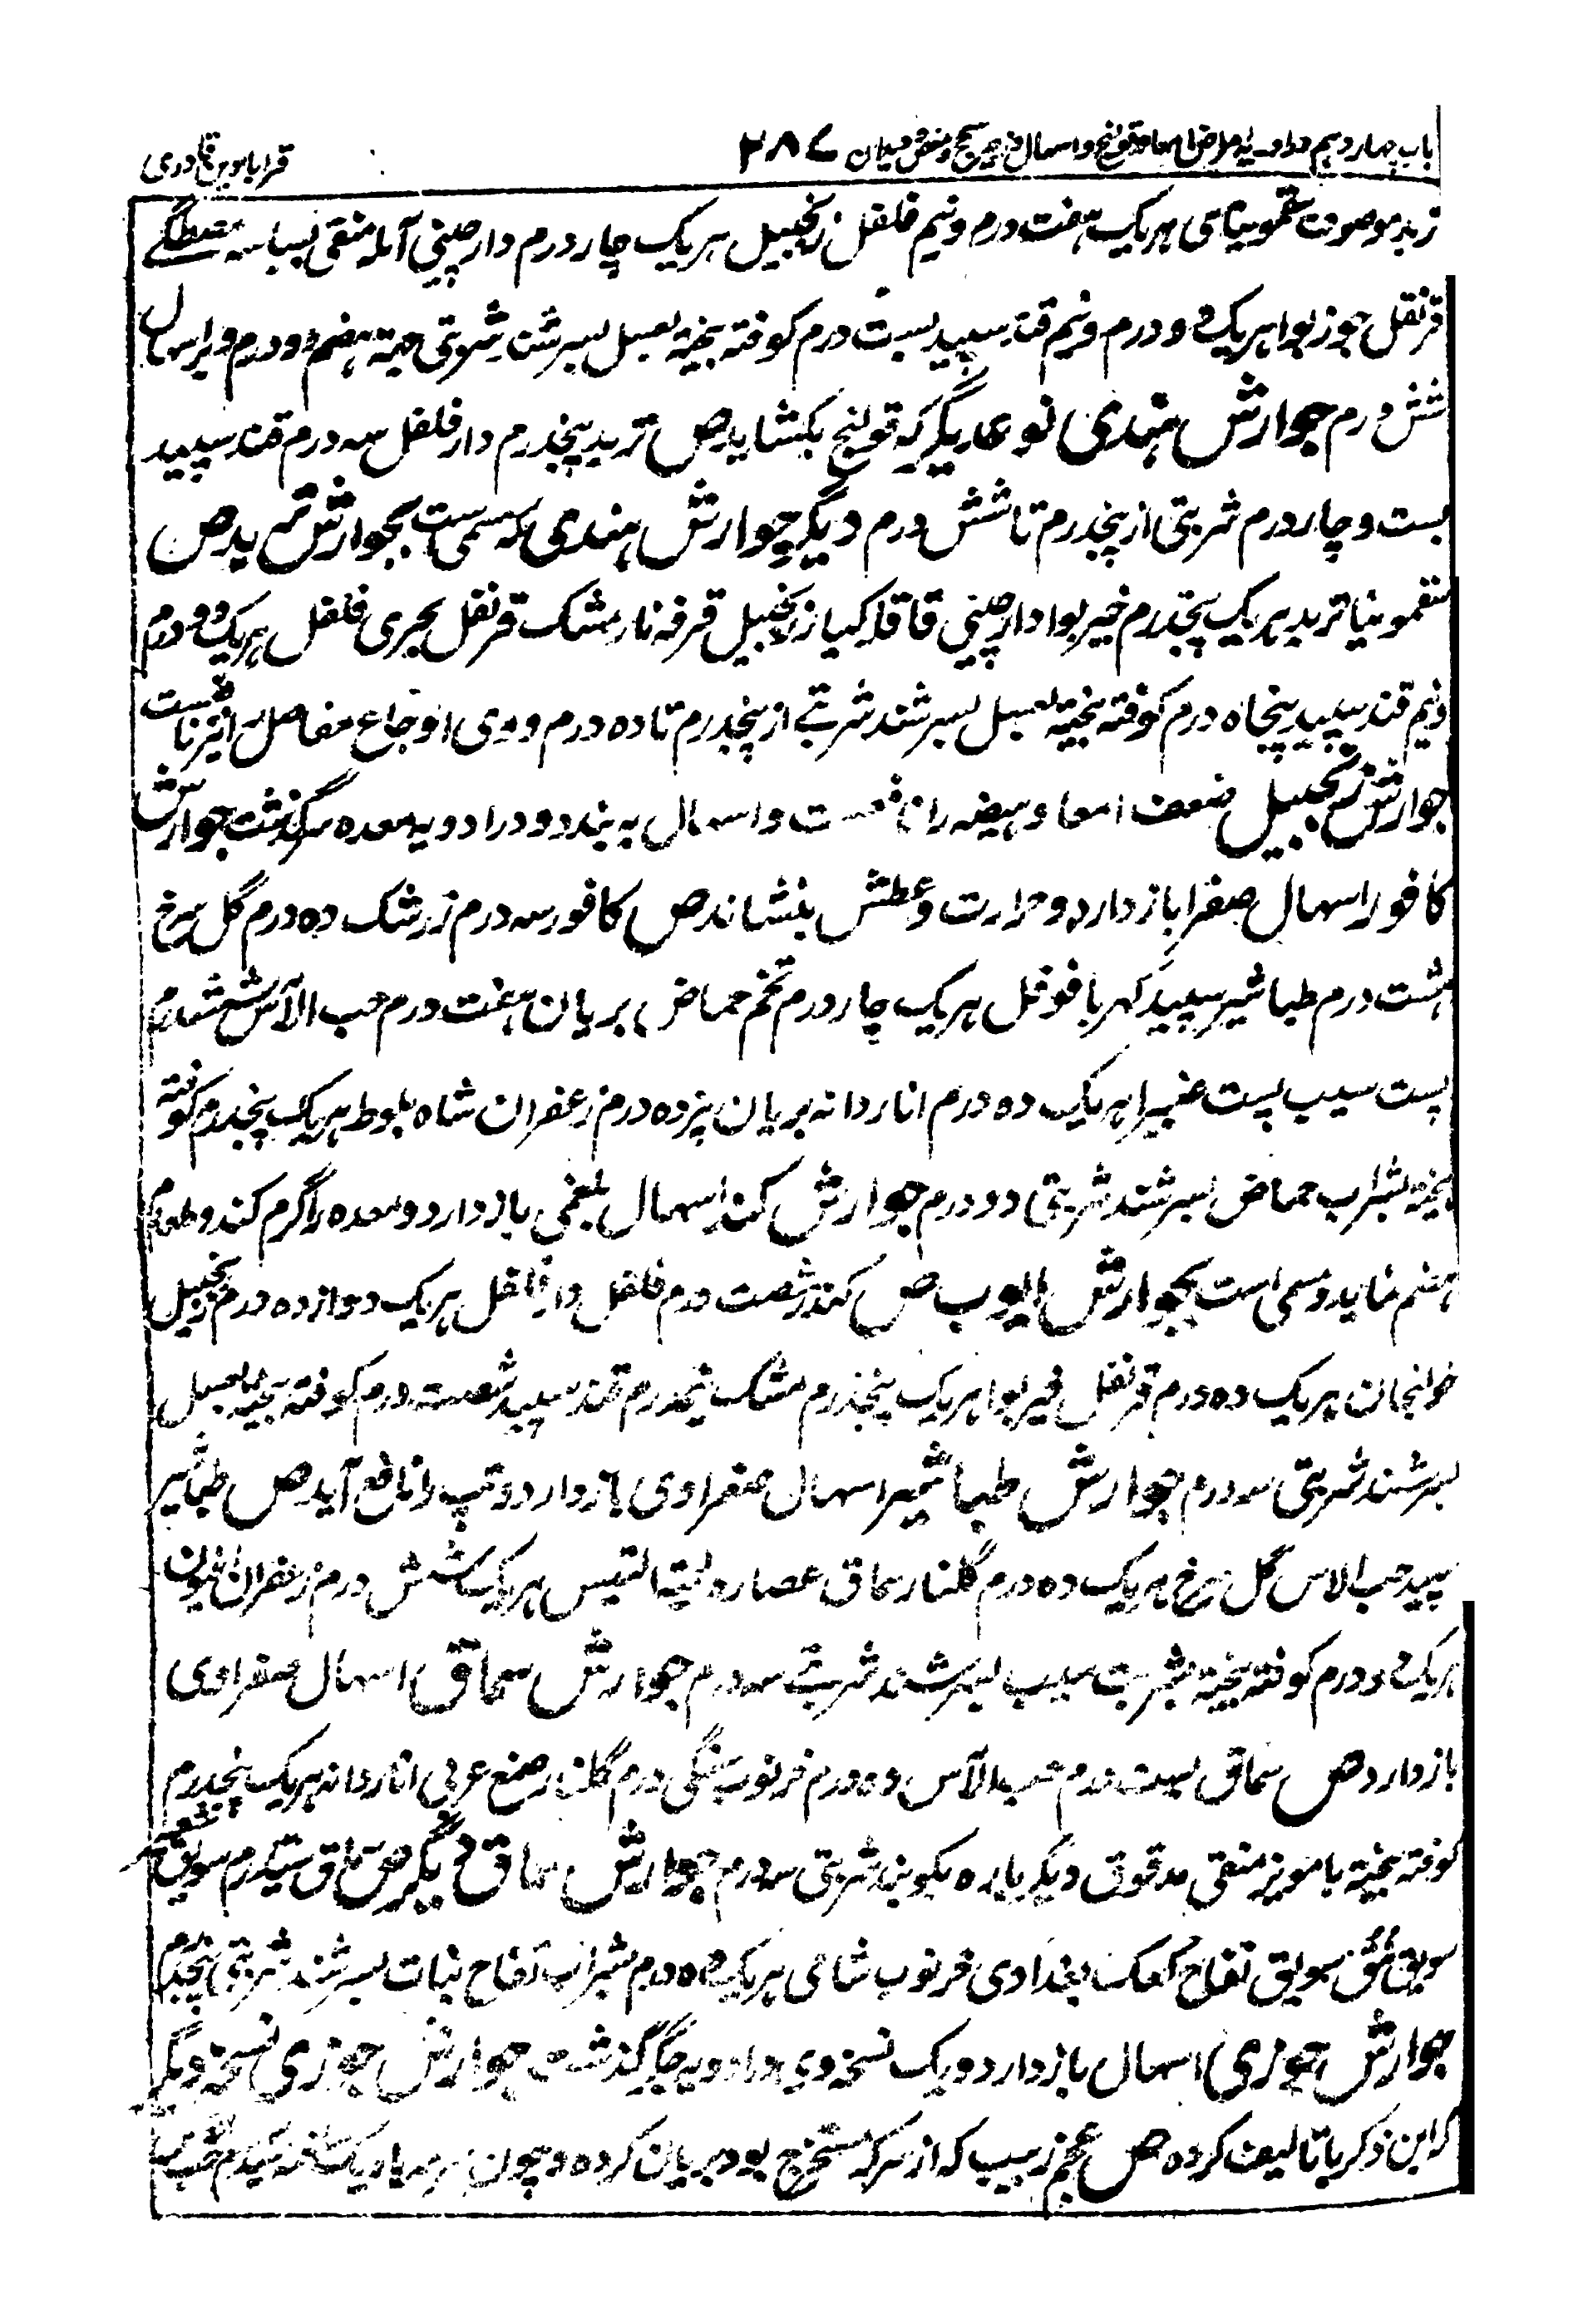 باب چهاردهم در ادویه امراض امعا قولنج و اسهال و زحیر و سحج و مغص و دیدان ۲۸۷ قرابادین قادری
تربد موصوف سقمونیا مشوی هریک هفت درم و نیم فلفل زنجبیل هریک چار درم دارچینی آمله منقی بسباسه مصطگے
قرنفل جوزبوا هریک دو درم و نیم قند سپید بست درم کوفته بیخته بعسل بسرشند شربتی جهته هضم دو درم و براے اسهال
شش درم جوارش هندی نوع دیگر که قولنج بکشاید ص تربد پنجدرم دارفلفل سه درم قند سپید
بست و چار درم شربتی از پنجدرم تا شش درم دیگر جوارش هندی که مسمی ست بجوارش تربد ص
سقمونیا تربد هریک پنجدرم خیربوا دارچینی قاقله کبار زنجبیل قرفه نارمشک قرنفل بحری فلفل هریک دو درم
ونیم قند سپید پنجاه درم کوفته بیخته بعسل بسرشند شربتے از پنجدرم تا ده درم و وی اوجاع مفاصل را نیز نافع ست
جوارش زنجبیل ضعف امعا و هیضه را نافع ست و اسهال به بندد و در ادویه معده گذشت جوارش
کافور اسهال صفرا باز دارد و حرارت و عطش بنشاند ص کافور سه درم زرشک ده درم گل سرخ
هشت درم طباشیر سپید کهربا فوفل هریک چار درم تخم حماض بریان هفت درم حب الآس شش درم
پست سیب پست غبیرا هریک ده درم اناردانه بریان پنزده درم زعفران شاه بلوط هریک پنجدرم کوفته
بیخته بشراب حماض بسرشند شربتی دو درم جوارش کندر اسهال بلغمی باز دارد و معده را گرم کند و طعام
هضم نماید و مسمی است بجوارش ایوب ص کندر شصت درم فلفل دارفلفل هریک دوازده درم زنجبیل
خولنجان هریک ده درم قرنفل خیربوا هریک پنجدرم مشک نیمدرم قند سپید شصت درم کوفته بیخته بعسل
بسرشند شربتی سه درم جوارش طباشیر اسهال صفراوی باز دارد و تپ را نافع آید ص طباشیر
سپید حب الاس گل سرخ هریک ده درم گلنار سماق عصاره لحیة التیس هریک شش درم زعفران افیون
هریک دو درم کوفته بیخته بشربت سیب بسرشند شربتے سه درم جوارش سماق اسهال صفراوی
باز دارد ص سماق بست درم حب الآس ده درم خرنوب درم گلنار صمغ عربی اناردانه هریک پنجدرم
کوفته بیخته با مویز منقی مدقوق دیگر باره بکوبند شربتی سه درم جوارش سماق دیگر ص سماق درم سویق شعیر
سویق نبق سویق تفاح کعک بغدادی خرنوب شامی هریک ده درم بشراب تفاح نبات بسرشند شربتی پنجدرم
جوارش جوزی اسهال باز دارد و یک نسخه وی در ادویه جگر گذشت جوارش جوزی نسخه دیگر
که ابن ذکریا تالیف کرده ص عجم زبیب که از سرکه مستخرج بود بریان کرده و چون سرمه باریک ساخته